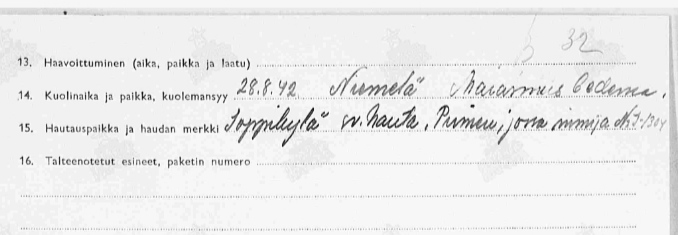 32
13. Haavoittuminen (aika, paikka ja laatu)
14. Kuolinaika ja paikka, kuolemansyy 28.8.42 Niemelä Marasmus Oedema.
15. Hautauspaikka ja haudan merkki Soppikylä sv. hauta, Puinen, jossa nimi ja
16. Talteenotetut esineet, paketin numero